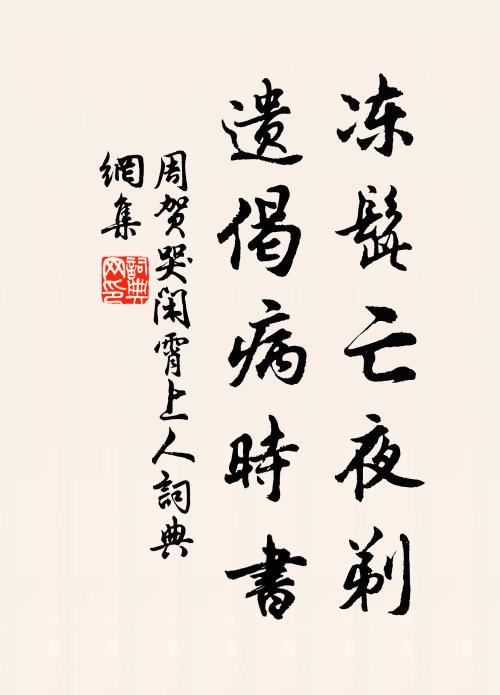 冻髭亡夜剃
遗偈病時書
周贺哭閑霄上人詞典
網集
詞典
网印